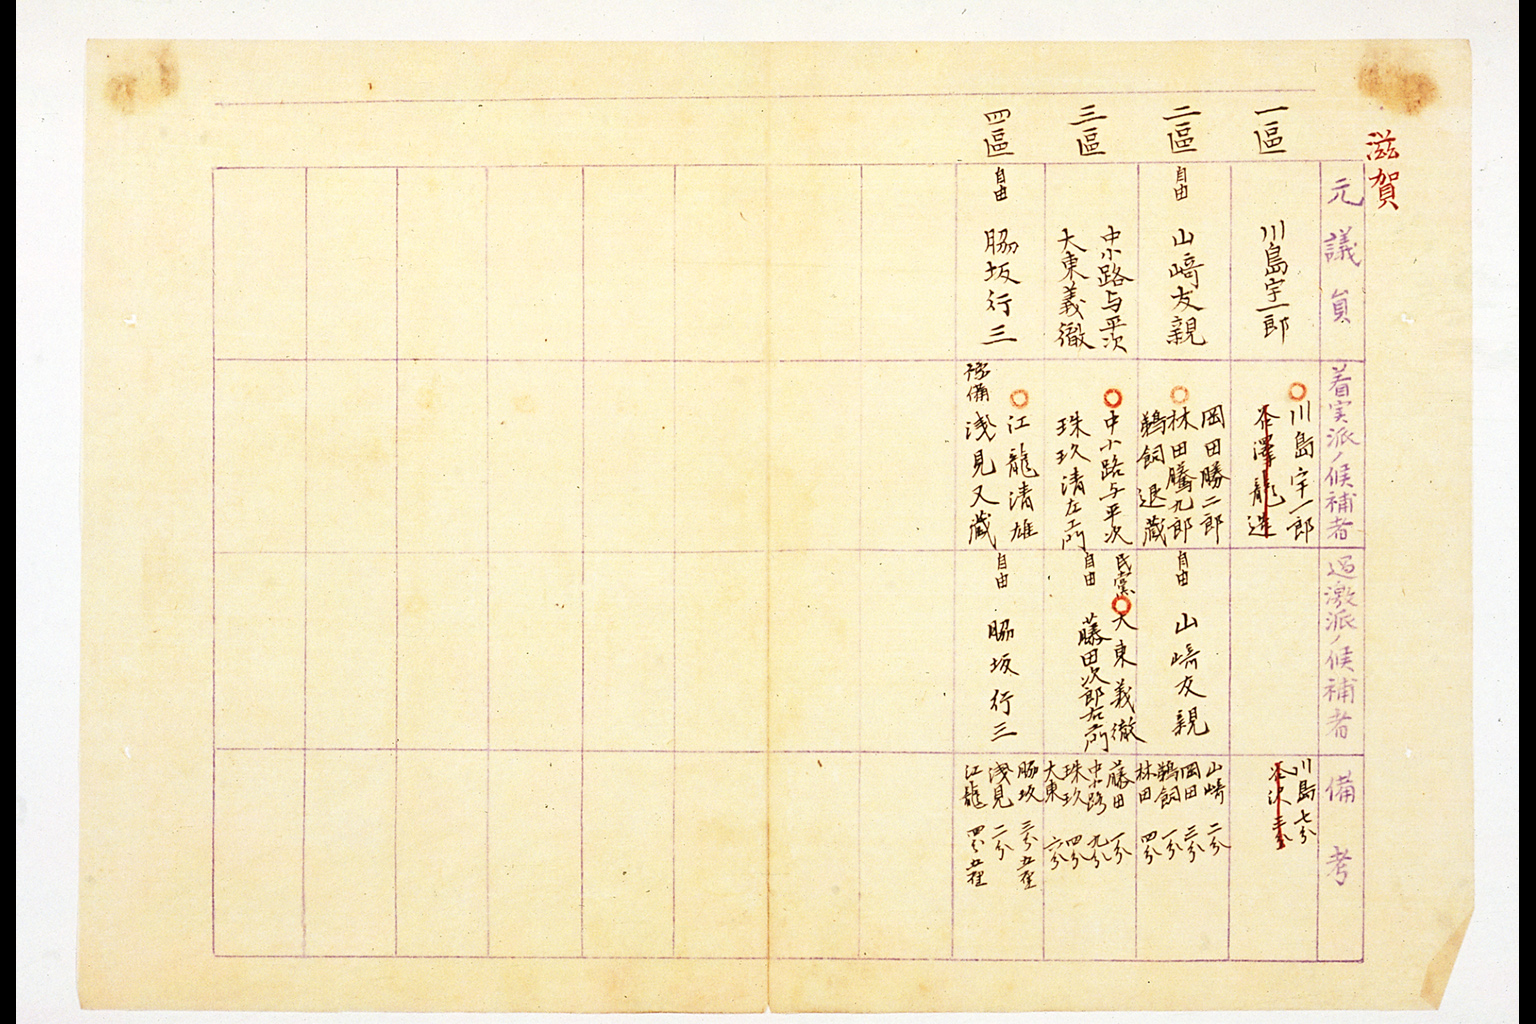 滋賀
元議員
着実派ノ候補者
過激派ノ候補者
備考
一區
川島宇一郎
川島宇一郎
谷澤龍造
川島七分
谷沢三分
二區
自由
山﨑友親
岡田勝二郎
林田騰九郎
鵜飼退蔵
自由
山﨑友親
山﨑二分
岡田三分
鵜飼一分
林田四分
三區
中小路与平次
大東義徹
中小路与平次
珠玖清左エ門
民党
大東義徹
自由
藤田次郎右エ門
藤田一分
中小路九分
珠玖四分
大東六分
四區
自由
脇坂行三
江龍清雄
豫備
浅見又蔵
自由
脇坂行三
脇坂三分五厘
浅見二分
江龍四分五厘